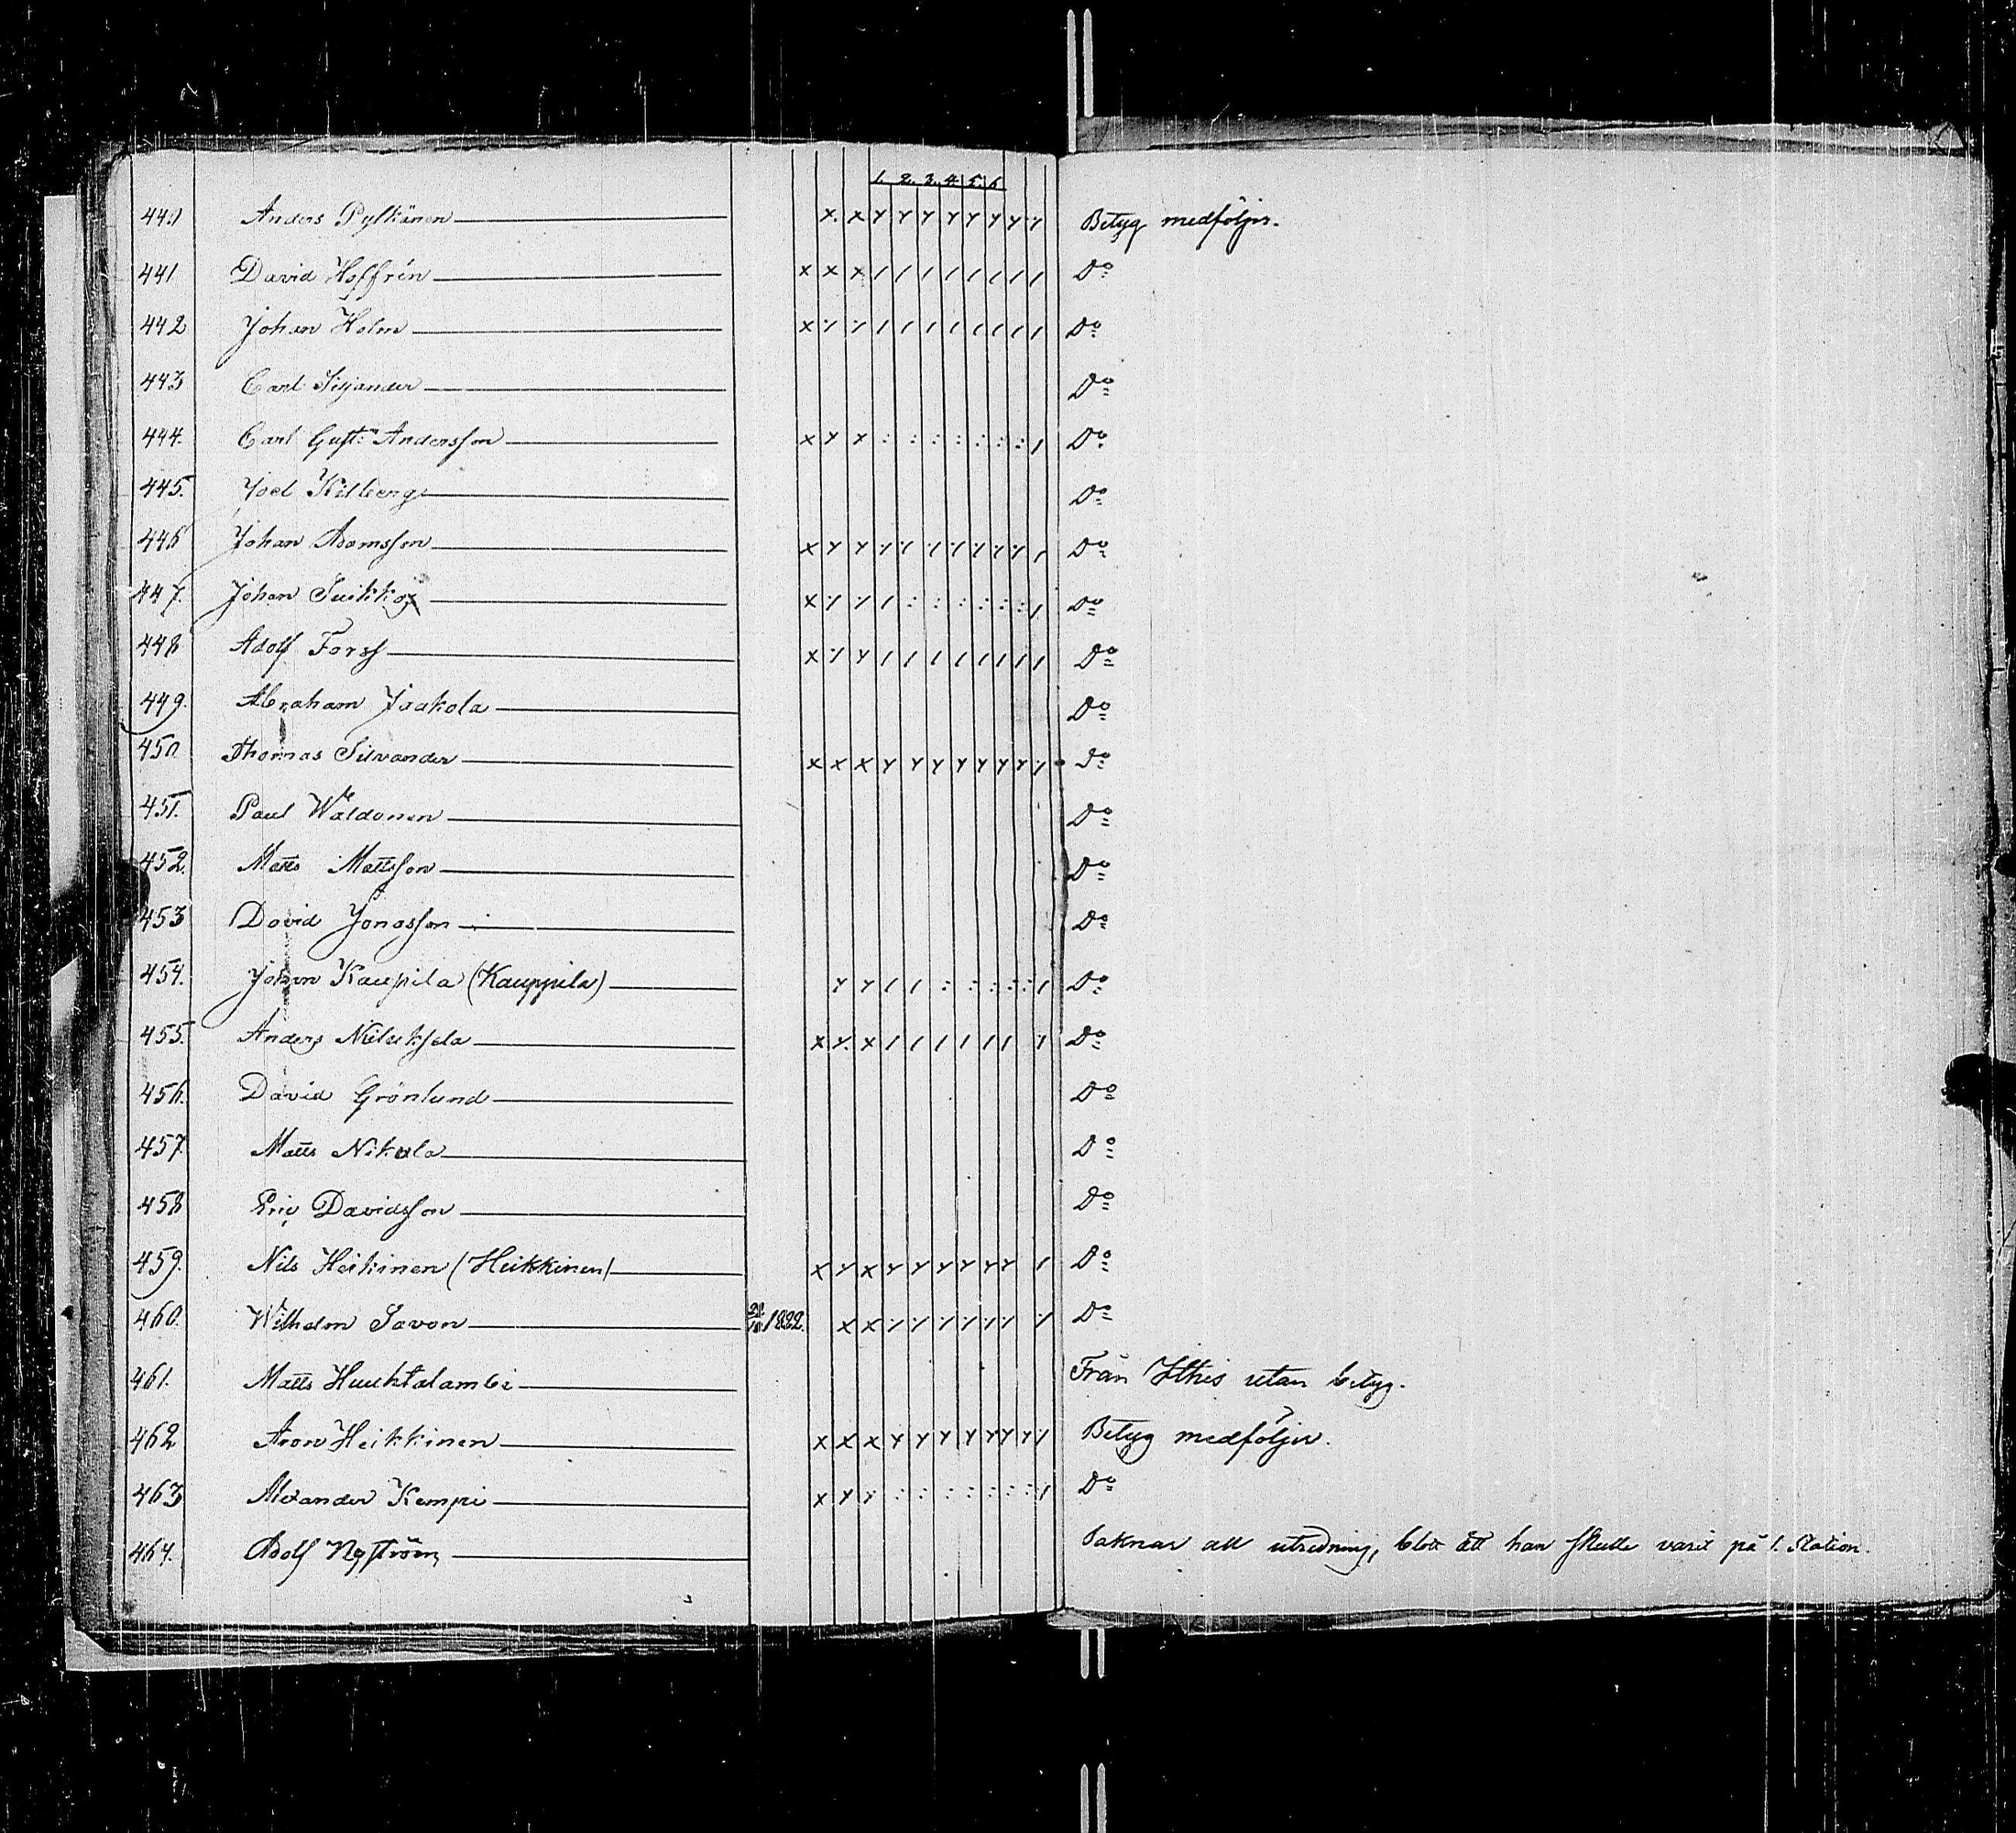 1. 2. 3. 4. 5. 6
440 Anders Pylkänen Betyg medföljer.
441 David Hoffrén Do
442 Johan Holm Do
443 Carl Siljander Do
444. Carl Gust: Andersson Do
445. Joel Killberg Do
446 Johan Adamsson Do
447. Johan Suikkoj Do
448 Adolf Forss Do
449. Abraham Jaakola Do
450 Thomas Silvander Do
451. Paul Waldonen Do
452. Matts Mattsson Do
453 David Jonasson Do
454. Johan Kaupila (Kauppila) Do
455. Anders Do
456. David Grönlund Do
457. Matts Nikula Do
458 Eric Davidsson Do
459. Nils Heikinen (Heikkinen) Do
460. Wilhelm Savon 1882. Do
461. Matts Huuhtalambi Från Ithis utan betyg.
462 Aron Heikkinen Betyg medföljer.
463 Alexander Kempi Do
464. Adolf Nyström Saknar all utredning, blott att han skulle varit på 1. Station.